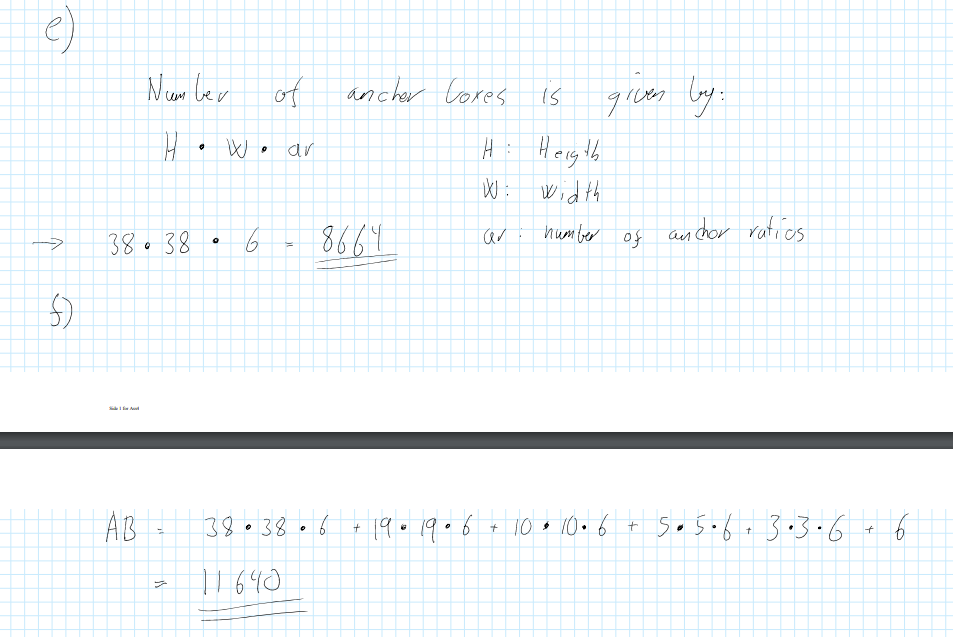 e)
Number of anchor boxes is given by:
H • W • ar
H : Heigth
W : Width
→ 38 • 38 • 6 = 8664
ar : number of anchor ratios
f)
Side 1 for Axel
AB = 38 • 38 • 6 + 19 • 19 • 6 + 10 • 10 • 6 + 5 • 5 • 6 + 3 • 3 • 6 + 6
= 11640